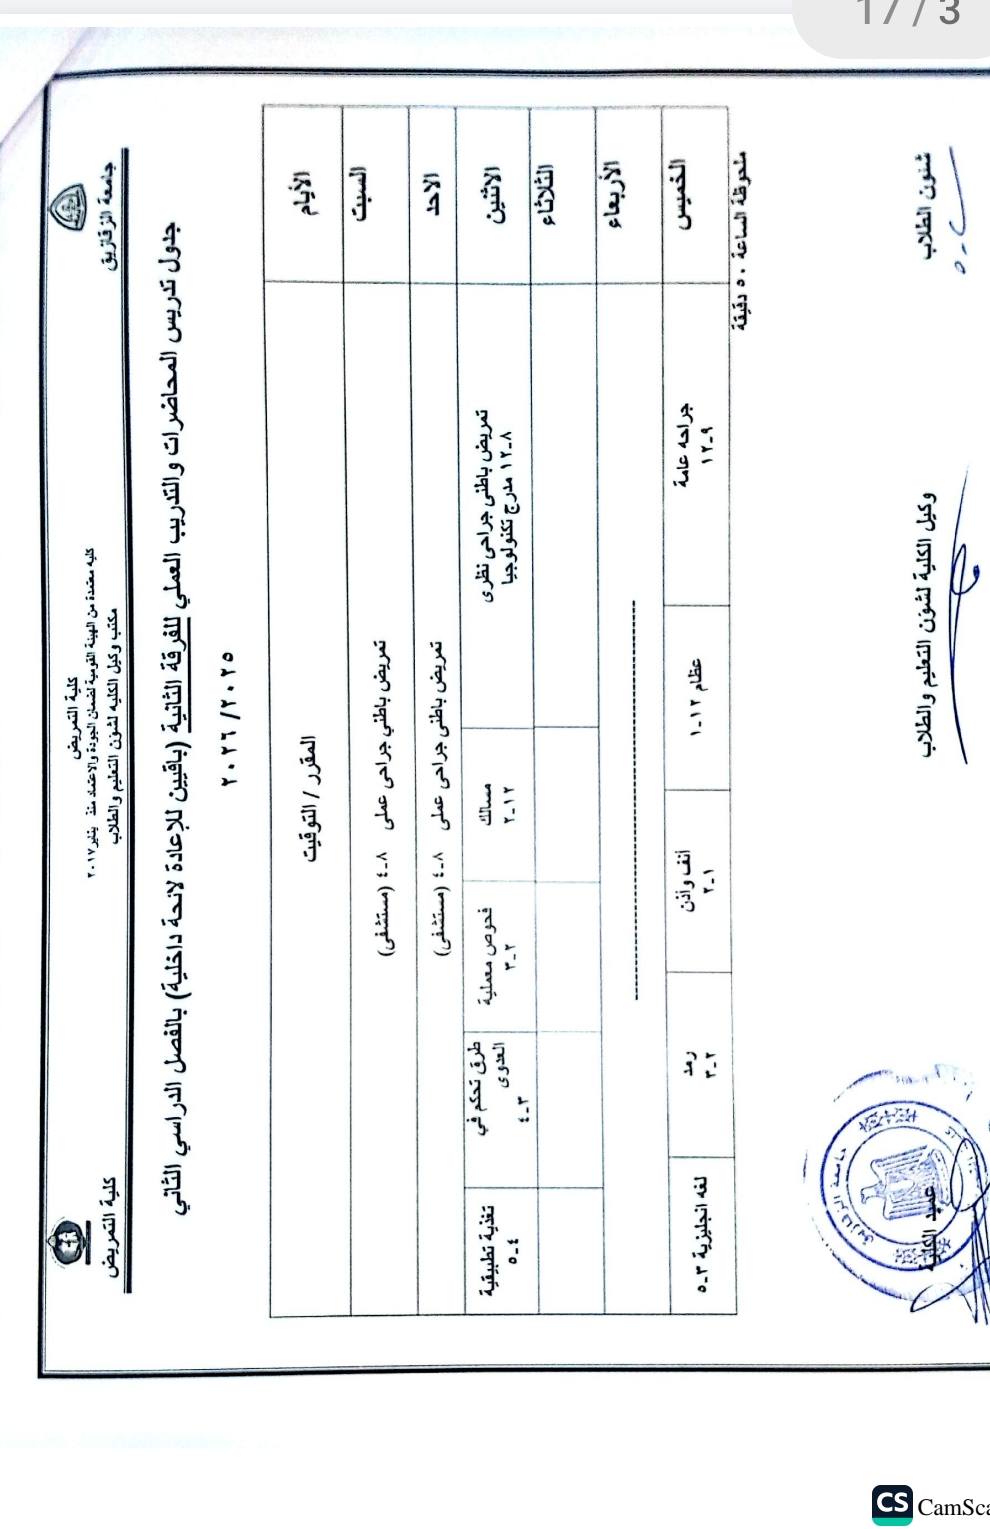 17 / 3
جامعة الزقازيق
كلية التمريض
كلية التمريض
كلية معتمدة من الهيئة القومية لضمان الجودة والاعتماد منذ يناير ٢٠١٧
مكتب وكيل الكلية لشئون التعليم والطلاب
جدول تدريس المحاضرات والتدريب العملي للفرقة الثانية (باقيين للإعادة لائحة داخلية) بالفصل الدراسي الثاني
٢٠٢٦/٢٠٢٥
الأيام
المقرر / التوقيت
السبت
تمريض باطني جراحى عملى ٨-٤ (مستشفى)
الاحد
تمريض باطنى جراحى عملى ٨-٤ (مستشفى)
الاثنين
تمريض باطنى جراحى نظرى
٨-١٢ مدرج تكنولوجيا
مسالك
١٢-٢
فحوص معملية
٢-٣
طرق تحكم في
العدوى
٣-٤
تغذية تطبيقية
٤-٥
الثلاثاء
الأربعاء
الخميس
جراحه عامة
٩-١٢
عظام ١٢-١
أنف وأذن
١-٢
رمد
٢-٣
لغه انجليزية ٣-٥
ملحوظة الساعة ٥٠ دقيقة
شئون الطلاب
وكيل الكلية لشئون التعليم والطلاب
عميد الكلية
CS CamSca